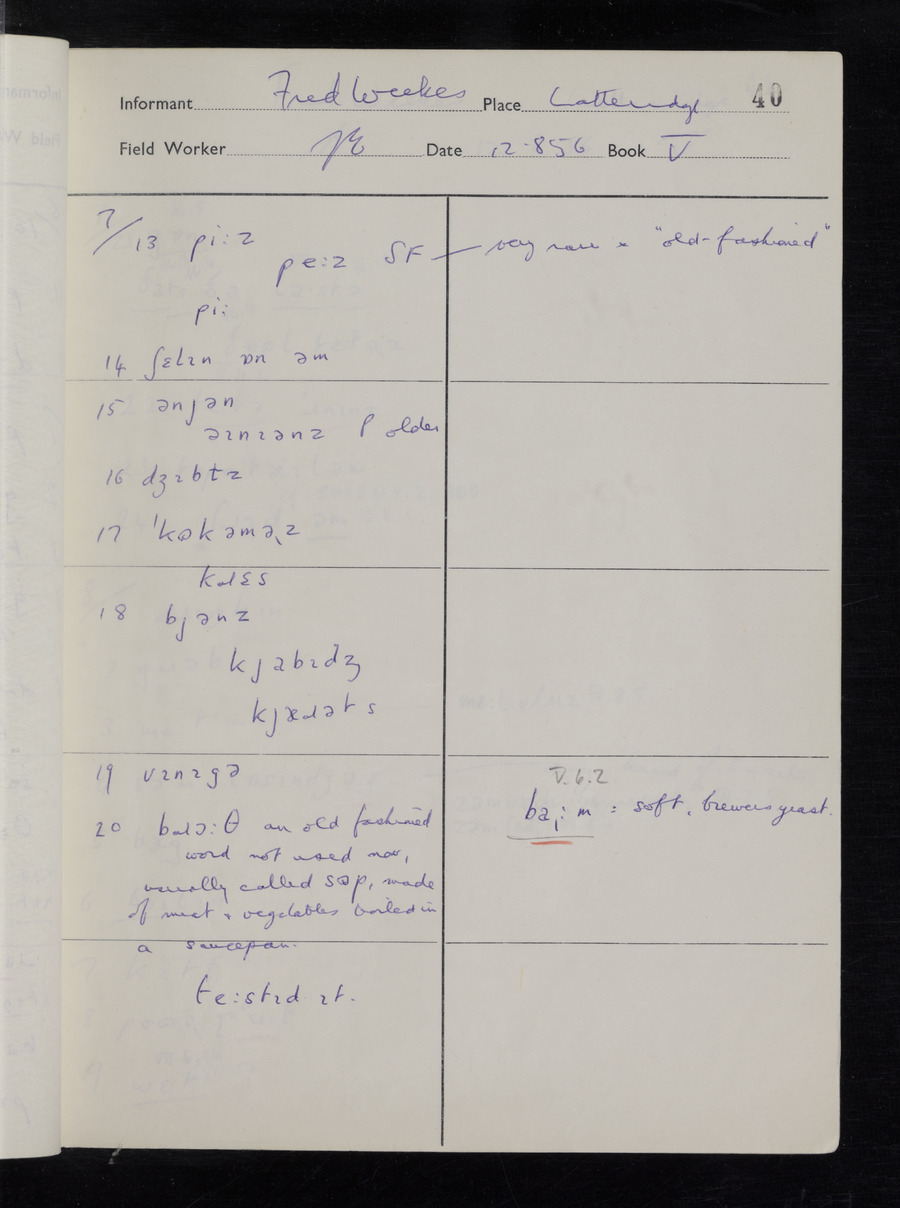 Informant Fred Weekes Place Latteridge 40
Field Worker Date 12.8.56 Book V
7/13 pi:z
pe:z SF — very rare & "old-fashioned"
pi:
14 ʃɛlɪn ɒn əm
15 ənjən
əɪnɪənz P older
16 dʒɪbɫz
17 ˈkɒkəmə˞z
kɹɛs
18 bjənz
kjabɪdʒ
kjæɹəts
19 vɪnɪgə
V.6.2
ba:m = soft, brewers yeast.
20 bɹɔ:θ an old fashioned
word not used now,
usually called sɒp, made
of meat & vegetables boiled in
a saucepan.
te:stɪd ɪt.